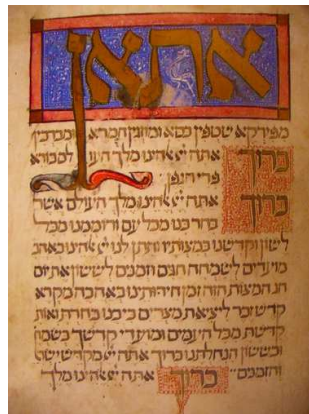 אתאן
שטפין כסא ומוזגין חמרא ומברכין
ברוך אתה יי אלהינו מלך
פרי הגפן
ברוך אתה יי אלהינו מלך העולם אשר
בחר בנו מכל עם ורוממנו מכל
לשון וקדשנו במצותיו ותתן לנו יי אלהינו באהב
מועדים לשמחה חגים וזמנים לששון את יום
חג המצות הזה זמן חירותינו באהבה מקרא
קדש זכר ליציאת מצרים כי בנו בחרת
קדשת מכל העמים ומועדי קדשך בשמח
ובששון הנחלתנו ברוך אתה יי מקדש
והזמנים ברוך אתה יי אלהינו מלך